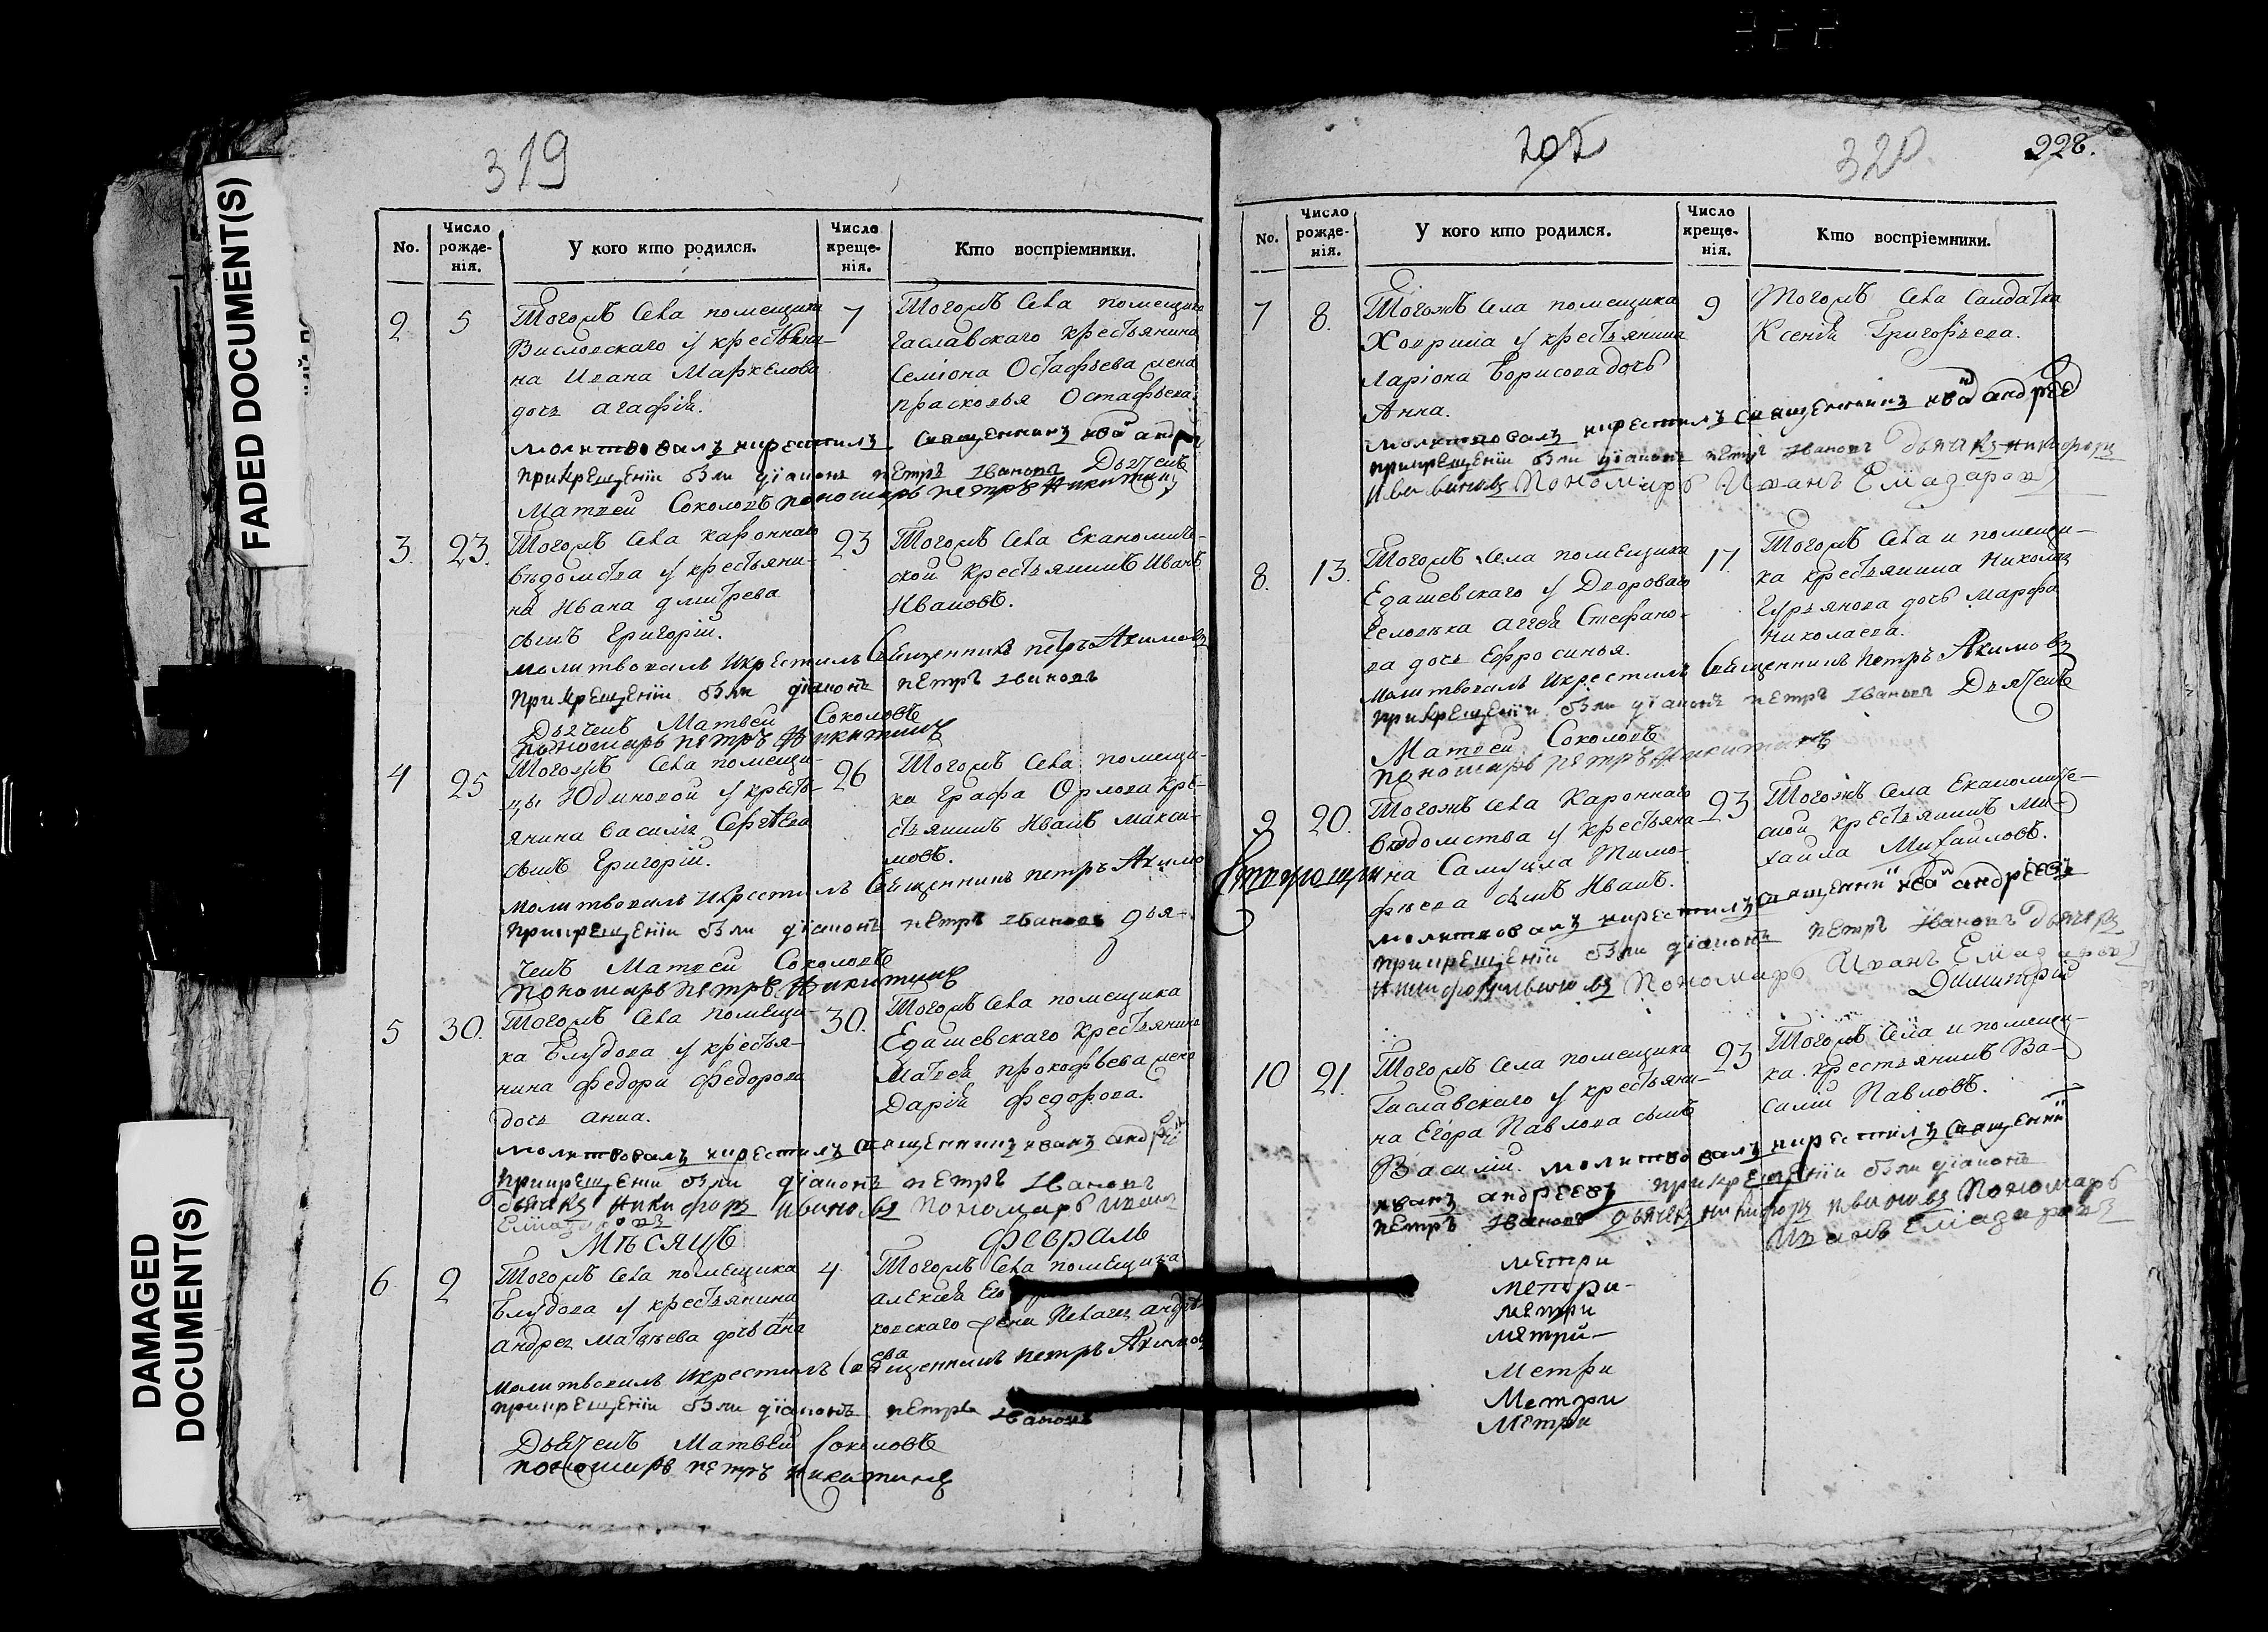 FADED DOCUMENT(S)
DAMAGED DOCUMENT(S)
319
No.
Число рожде-нія.
У кого кто родился.
Число креще-нія.
Кто воспріемники.
2
5
Тогожъ села помещика
Висловскаго у крестьяни-
на Ивана Маркелова
дочь агафія.
7
Тогожъ села помещика
крестьянина
Семіона Остафьева жена
прасковья Остафьева
молитвовалъ икрестилъ священникъ
прикрещеніи были діаконъ петръ Ивановъ Дьячекъ
Матвей Соколовъ пономарь петръ Никитинъ
3.
23.
Тогожъ села кароннаго
ведомства у крестьяни-
на Ивана дмитрева
сынъ Григорій.
23
Тогожъ села Еканомиче-
ской крестьянинъ Иванъ
Ивановъ.
молитвовалъ Икрестилъ Священникъ петръ Акимовъ
прикрещеніи были діаконъ петръ Ивановъ
Дьячекъ Матвей Соколовъ
пономарь петръ Никитинъ
4
25
Тогожъ села помещи-
цы Юдиновой у кресть-
янина василія Сергѣева
сынъ Григорій.
26
Тогожъ села помещи-
ка Графа Орлова кре-
стьянинъ Иванъ макси-
мовъ.
молитвовалъ Икрестилъ Священникъ петръ Акимо
прикрещеніи были діаконъ петръ Ивановъ дья-
чекъ Матвей Соколовъ
пономарь петръ Никитинъ
5
30.
Тогожъ села помещи-
ка Блудова у крестья-
нина федора федорова
дочь анна.
30.
Тогожъ села помещика
Едашевскаго крестьянина
матвея прокофьева жена
Дарія федорова.
молитвовалъ икрестилъ священникъ иванъ
прикрещеніи были діаконъ петръ Ивановъ
дьячекъ никифоръ ивановъ Пономарь Иванъ
Мѣсяцъ
февраль
6
2
Тогожъ села помещика
Блудова у крестьянина
андрея матвѣева дочь анна
4
Тогожъ села помещика
алексея
жена
ева
молитвовалъ Икрестилъ Священникъ петръ Акимовъ
прикрещеніи были діаконъ петръ Ивановъ
Дьячекъ Матвей Соколовъ
пономарь петръ Никитинъ
320
228.
No.
Число рожде-нія.
У кого кто родился.
Число креще-нія.
Кто воспріемники.
7
8.
Тогожъ села помещика
Ховрина у крестьянина
Ларіона Борисова дочь
Анна.
9
Тогожъ села салдатка
Ксенія Григорьева.
молитвовалъ икрестилъ священникъ
прикрещеніи были діаконъ петръ Ивановъ дьячекъ никифоръ
ивановъ Пономарь Иванъ Елиазаровъ
8.
13.
Тогожъ села помещика
Едашевскаго у Двороваго
человека аггея Стефано-
ва дочь Ефросинья.
17.
Тогожъ села и помещи-
ка крестьянина Николая
Гурьянова дочь марфа
Николаева.
молитвовалъ Икрестилъ Священникъ петръ Акимовъ
прикрещеніи были діаконъ петръ Ивановъ Дьячекъ
Матвей Соколовъ
пономарь петръ Никитинъ
9
20.
Тогожъ села Кароннаго
вѣдомства у крестьяни-
на Самуила Тимо-
фѣева сынъ Иванъ.
23
Тогожъ села Еканомиче-
ской крестьянинъ Ми-
хаила Михайловъ.
молитвовалъ икрестилъ
прикрещеніи были діаконъ петръ Ивановъ дьячекъ
никифоръ ивановъ Пономарь Иванъ Елиазаровъ
Димитрій
10
21.
Тогожъ села помещика
у крестьяни-
на Егора Павлова сынъ
Василій.
23
Тогожъ села и помещи-
ка крестьянинъ Ва-
силій Павловъ.
молитвовалъ икрестилъ
иванъ андреевъ прикрещеніи были діаконъ
петръ Ивановъ дьячекъ никифоръ ивановъ Пономарь
Иванъ Елиазаровъ
метри
метри-
метри
метри-
Метри
Метри
Метри